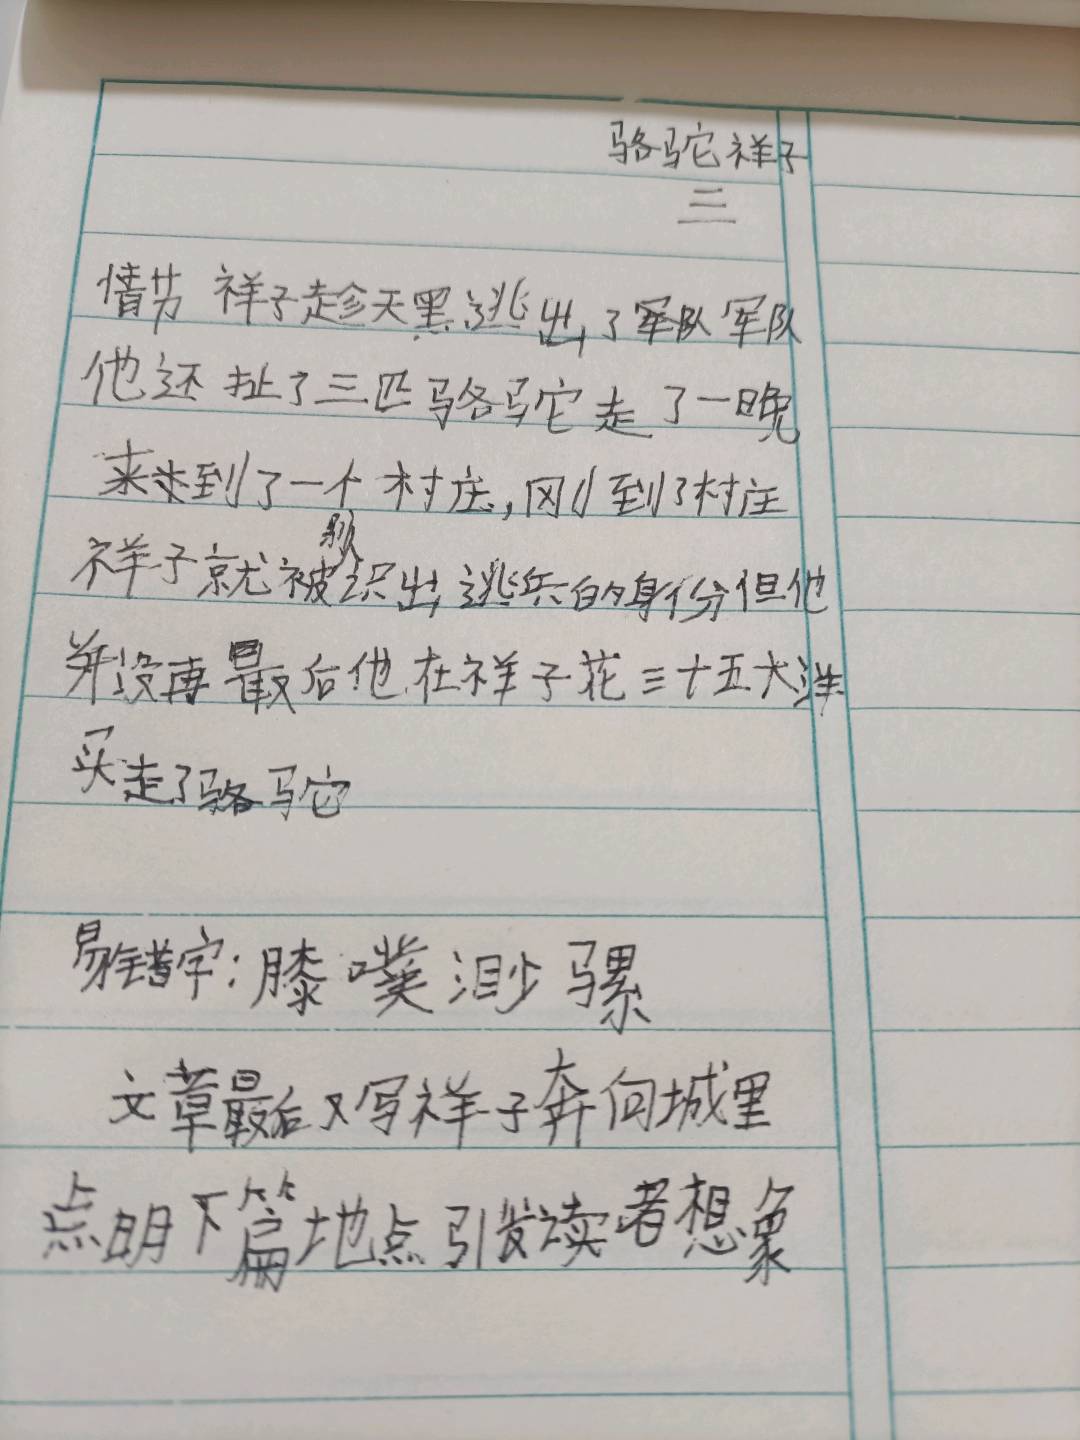 骆驼祥子
三
情节 祥子趁天黑逃出了军队军队
他还扯了三匹骆驼走了一晚
来来到了一个村庄,刚到了村庄
祥子就被别识出逃兵的身份但他
并没再最后他在祥子花三十五大洋
买走了骆驼
易错字:膝噗渺骡
文章最后又写祥子奔向城里
点明下篇地点引发读者想象